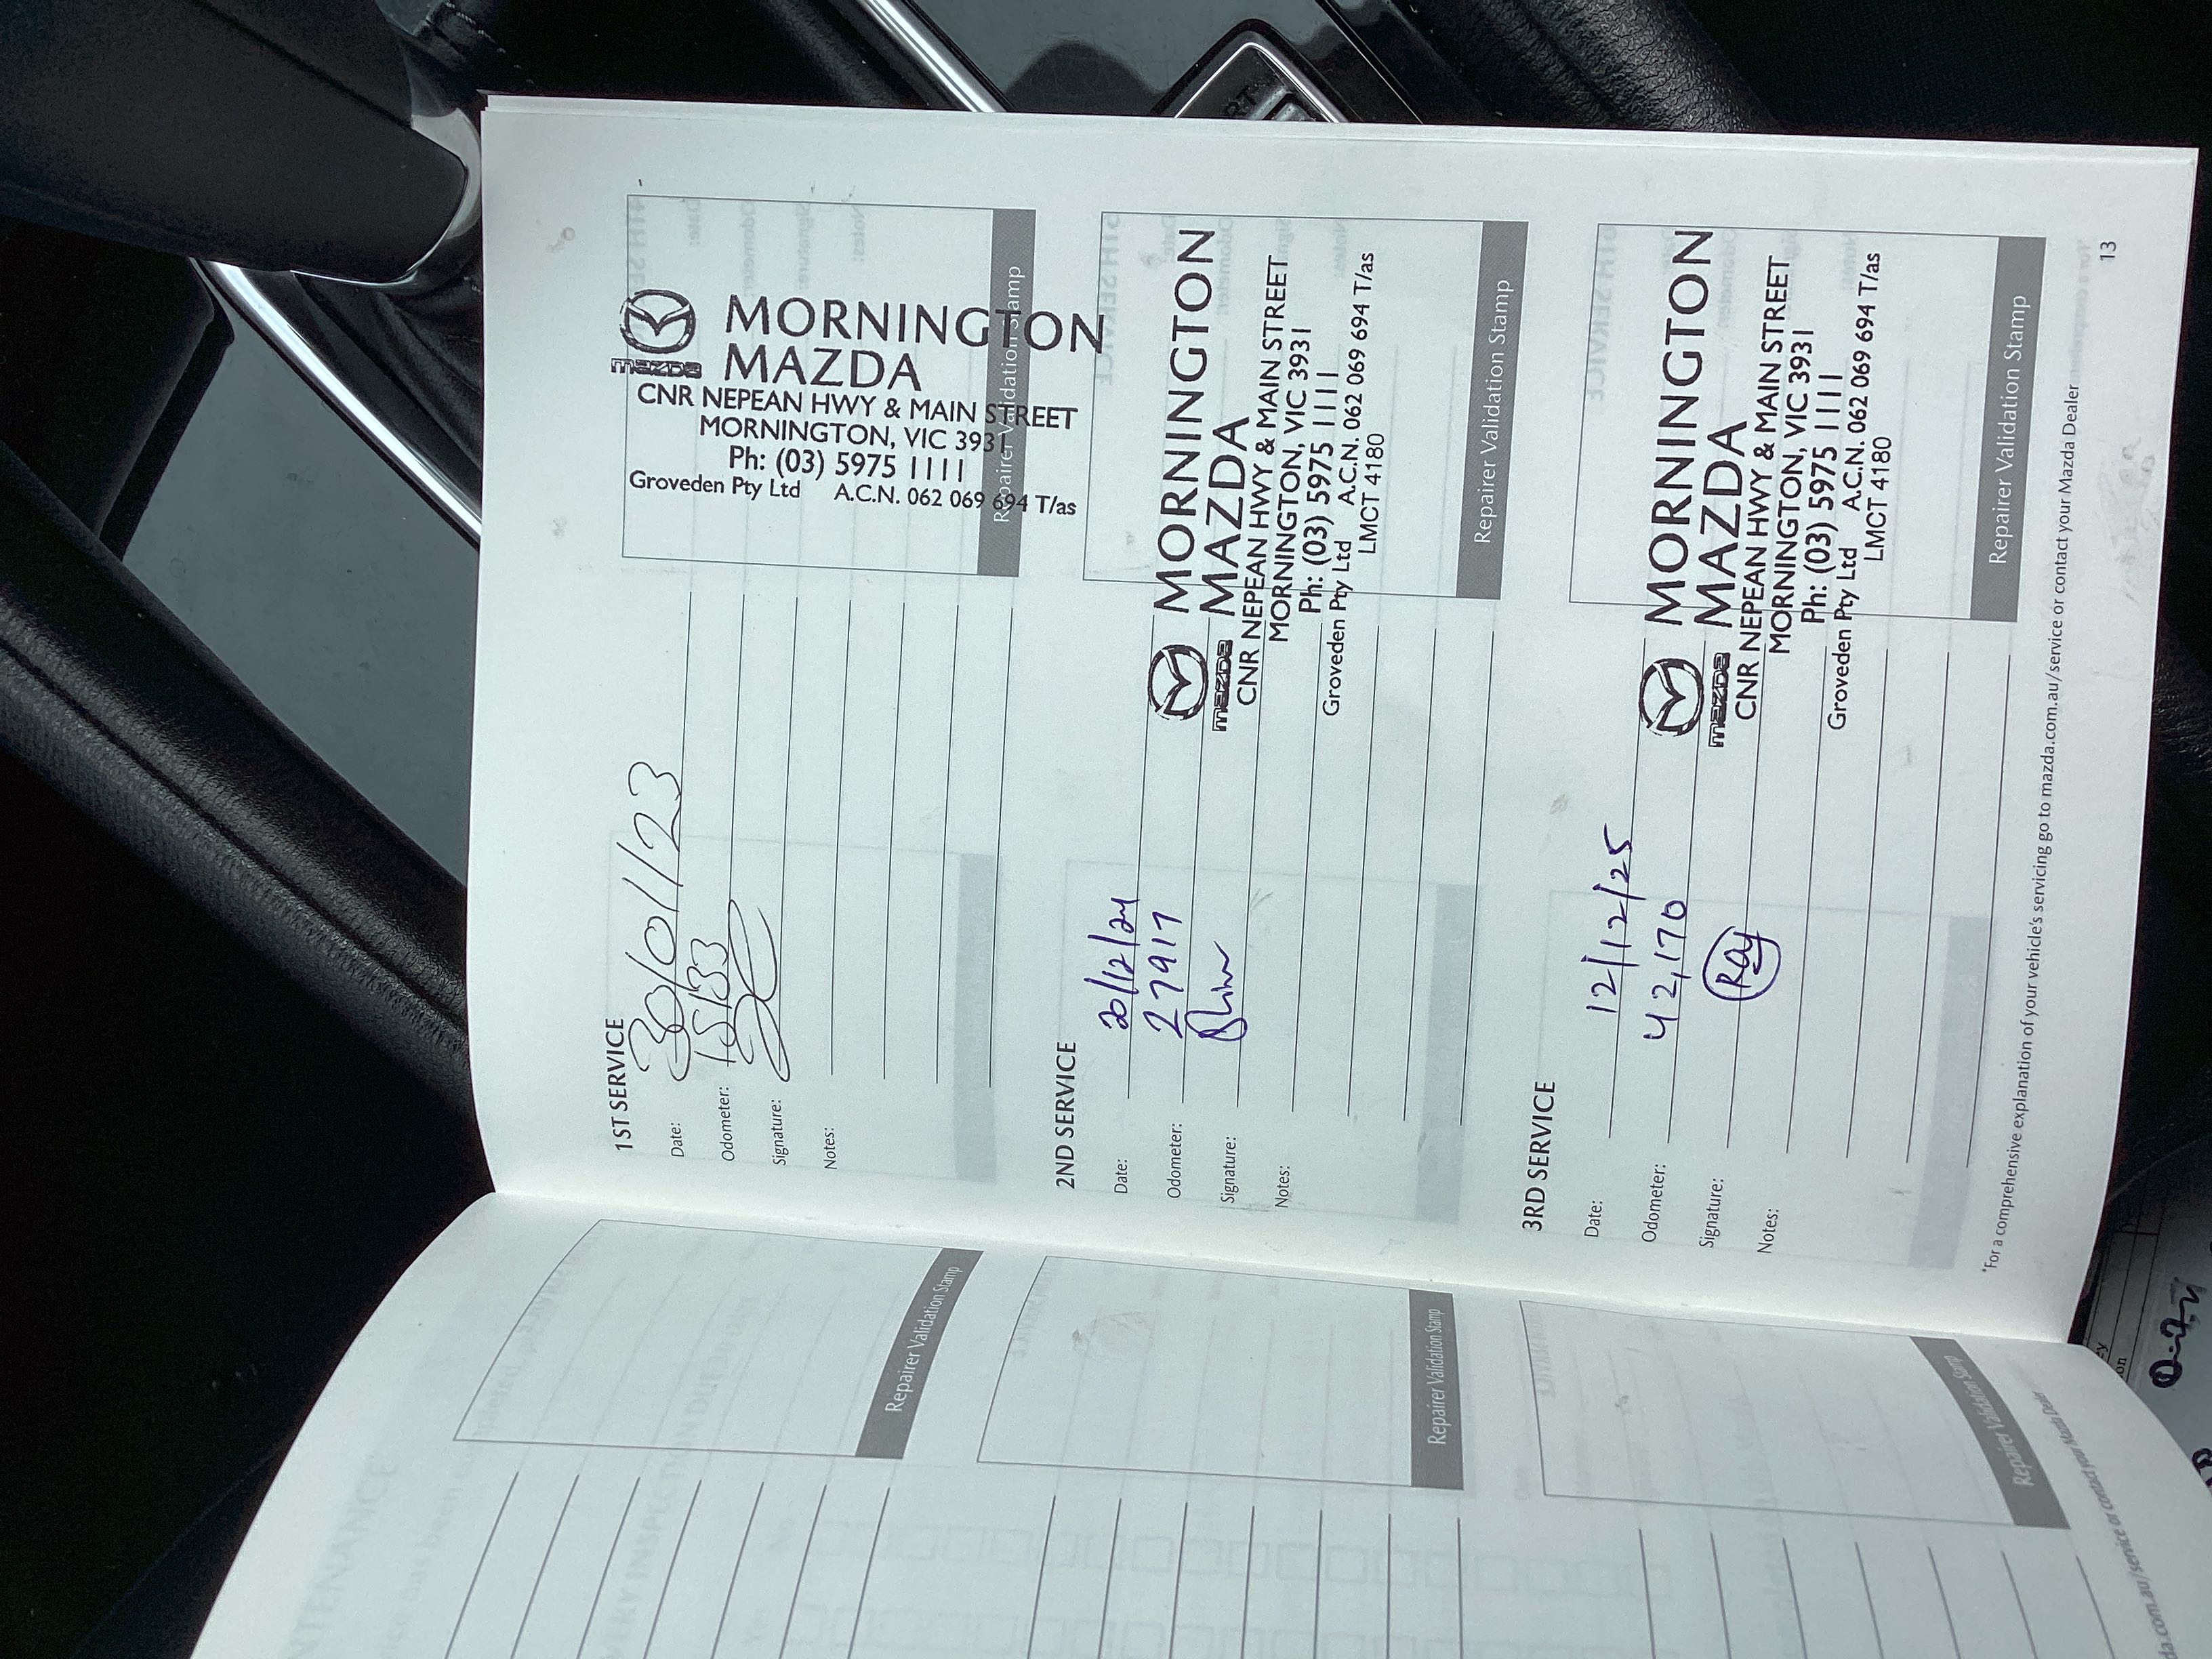 1ST SERVICE
Date: 30/01/23
Odometer: 15133
Signature:
Notes:
mazda
MORNINGTON
MAZDA
CNR NEPEAN HWY & MAIN STREET
MORNINGTON, VIC 3931
Ph: (03) 5975 1111
Groveden Pty Ltd A.C.N. 062 069 694 T/as
Repairer Validation Stamp
2ND SERVICE
Date: 20/12/24
Odometer: 27917
Signature:
Notes:
mazda
MORNINGTON
MAZDA
CNR NEPEAN HWY & MAIN STREET
MORNINGTON, VIC 3931
Ph: (03) 5975 1111
Groveden Pty Ltd A.C.N. 062 069 694 T/as
LMCT 4180
Repairer Validation Stamp
3RD SERVICE
Date: 12/12/25
Odometer: 42,170
Signature: Ray
Notes:
mazda
MORNINGTON
MAZDA
CNR NEPEAN HWY & MAIN STREET
MORNINGTON, VIC 3931
Ph: (03) 5975 1111
Groveden Pty Ltd A.C.N. 062 069 694 T/as
LMCT 4180
Repairer Validation Stamp
*For a comprehensive explanation of your vehicle's servicing go to mazda.com.au/service or contact your Mazda Dealer
13
Repairer Validation Stamp
Repairer Validation Stamp
Repairer Validation Stamp
da.com.au/service or contact your Mazda Dealer